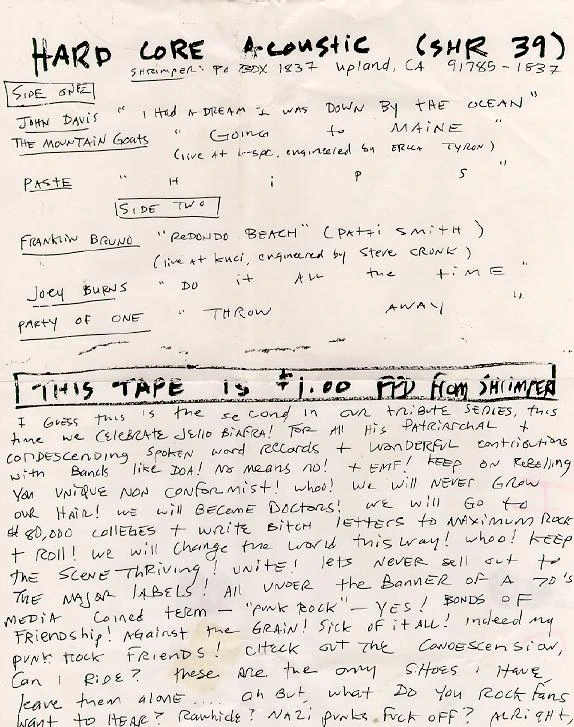 HARD CORE Acoustic (SHR 39)
SHRIMPER: PO BOX 1837 upland, CA 91785-1837
SIDE ONE
JOHN DAVIS " I HAD A DREAM I WAS DOWN BY THE OCEAN"
THE MOUNTAIN GOATS " GOING to MAINE "
(live at k-spc, engineered by ERIKA TYRON)
PASTE " H i P S "
SIDE TWO
FRANKLIN BRUNO "REDONDO BEACH" (PATTI SMITH)
(live at kuci, engineered by STEVE CRONK)
Joey BURNS " DO it ALL the tiME "
PARTY OF ONE " THROW AWAY "
THIS TAPE is $1.00 PPD from SHRIMPER
I GUESS this is the second in our tribute SERIES, this
time we CELEBRATE Jello BIAFRA! FOR All His PATRIARCHAL +
CONDESCENDING spoken word records + WONDERFUL contributions
with Bands like DOA! No means no! + EMF! KEEP ON REBELLING
You UNIQUE NON CONFORMIST! whoo! we will NEVER GROW
OUR HAIR! we will BECOME DOCTORS! we will GO to
$80,000 COLLEGES + WRITE BITCH letters to MAXIMUM ROCK
+ ROLL! we will Change the world this way! whoo! KEEP
the SCENE THRIVING! UNITE! lets NEVER SELL out to
THE MAJOR LABELS! All UNDER the BANNER OF A 70'S
MEDIA COINED TERM - "PUNK ROCK" - YES! BONDS OF
FRIENDSHIP! AGAINST the GRAIN! SICK OF it ALL! Indeed my
PUNK ROCK FRIENDS! CHECK OUT THE CONDESCENSION,
CAN I RIDE? these ARE the only SHOES I HAVE,
leave them alone.... oh But, what DO YOU ROCK FANS
WANT to HEAR? RAWHIDE? NAZI punks FUCK OFF? ALRIGHT,